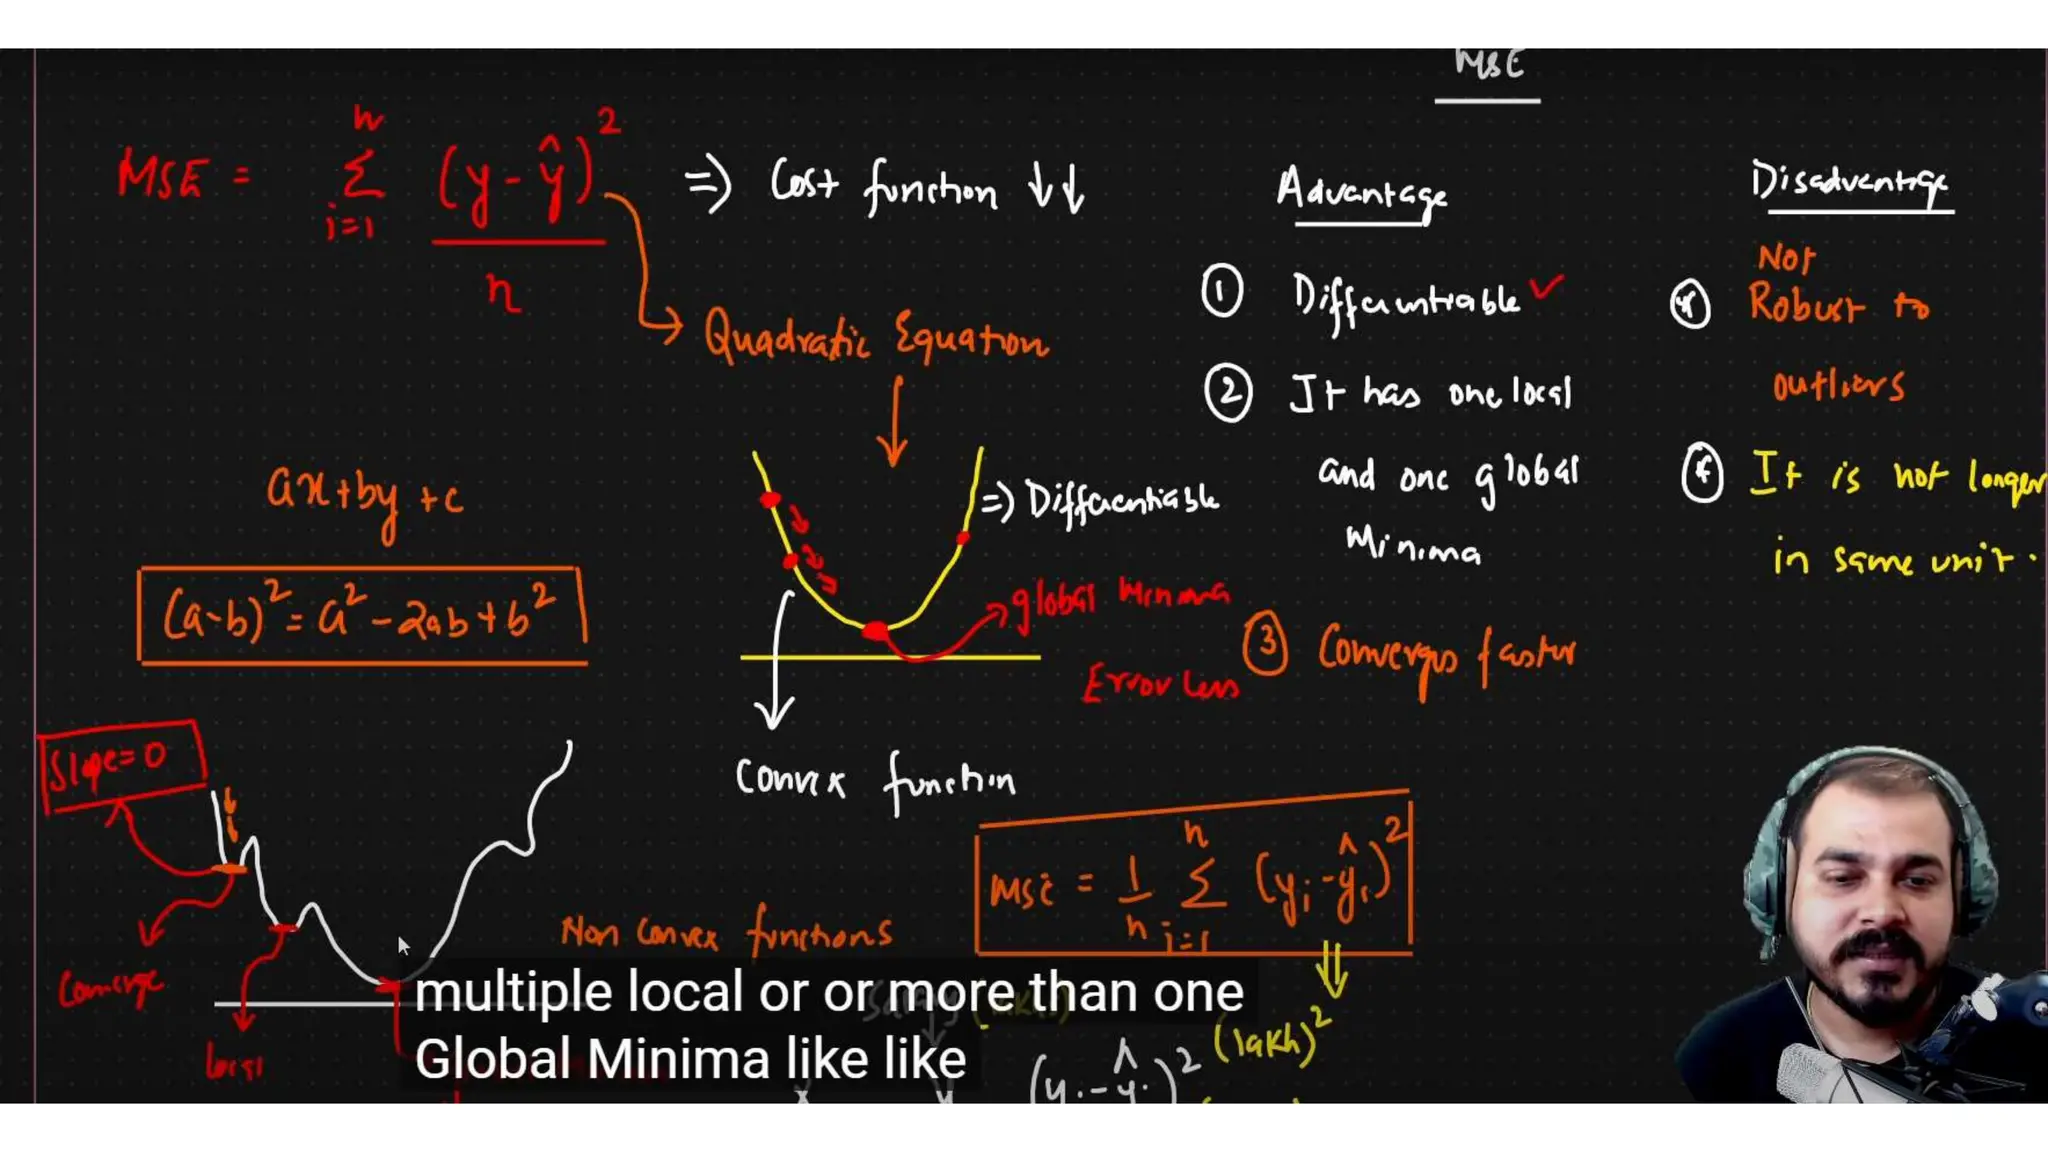 MSE
MSE = n Σ i=1 (y - ŷ)² / n ⇒ Cost function ↓↓
Quadratic Equation
ax+by+c
(a-b)² = a² - 2ab + b²
⇒ Differentiable
global Minima
Error Less
Convex function
Advantage
① Differentiable ✓
② It has one local
and one global
Minima
③ Converges faster
Disadvantage
Not
Robust to
outliers
It is not longer
in same unit.
Slope=0
Converge
local
Non Convex functions
MSE = 1/n n Σ i=1 (yi - ŷi)²
(lakh)²
multiple local or or more than one
Global Minima like like